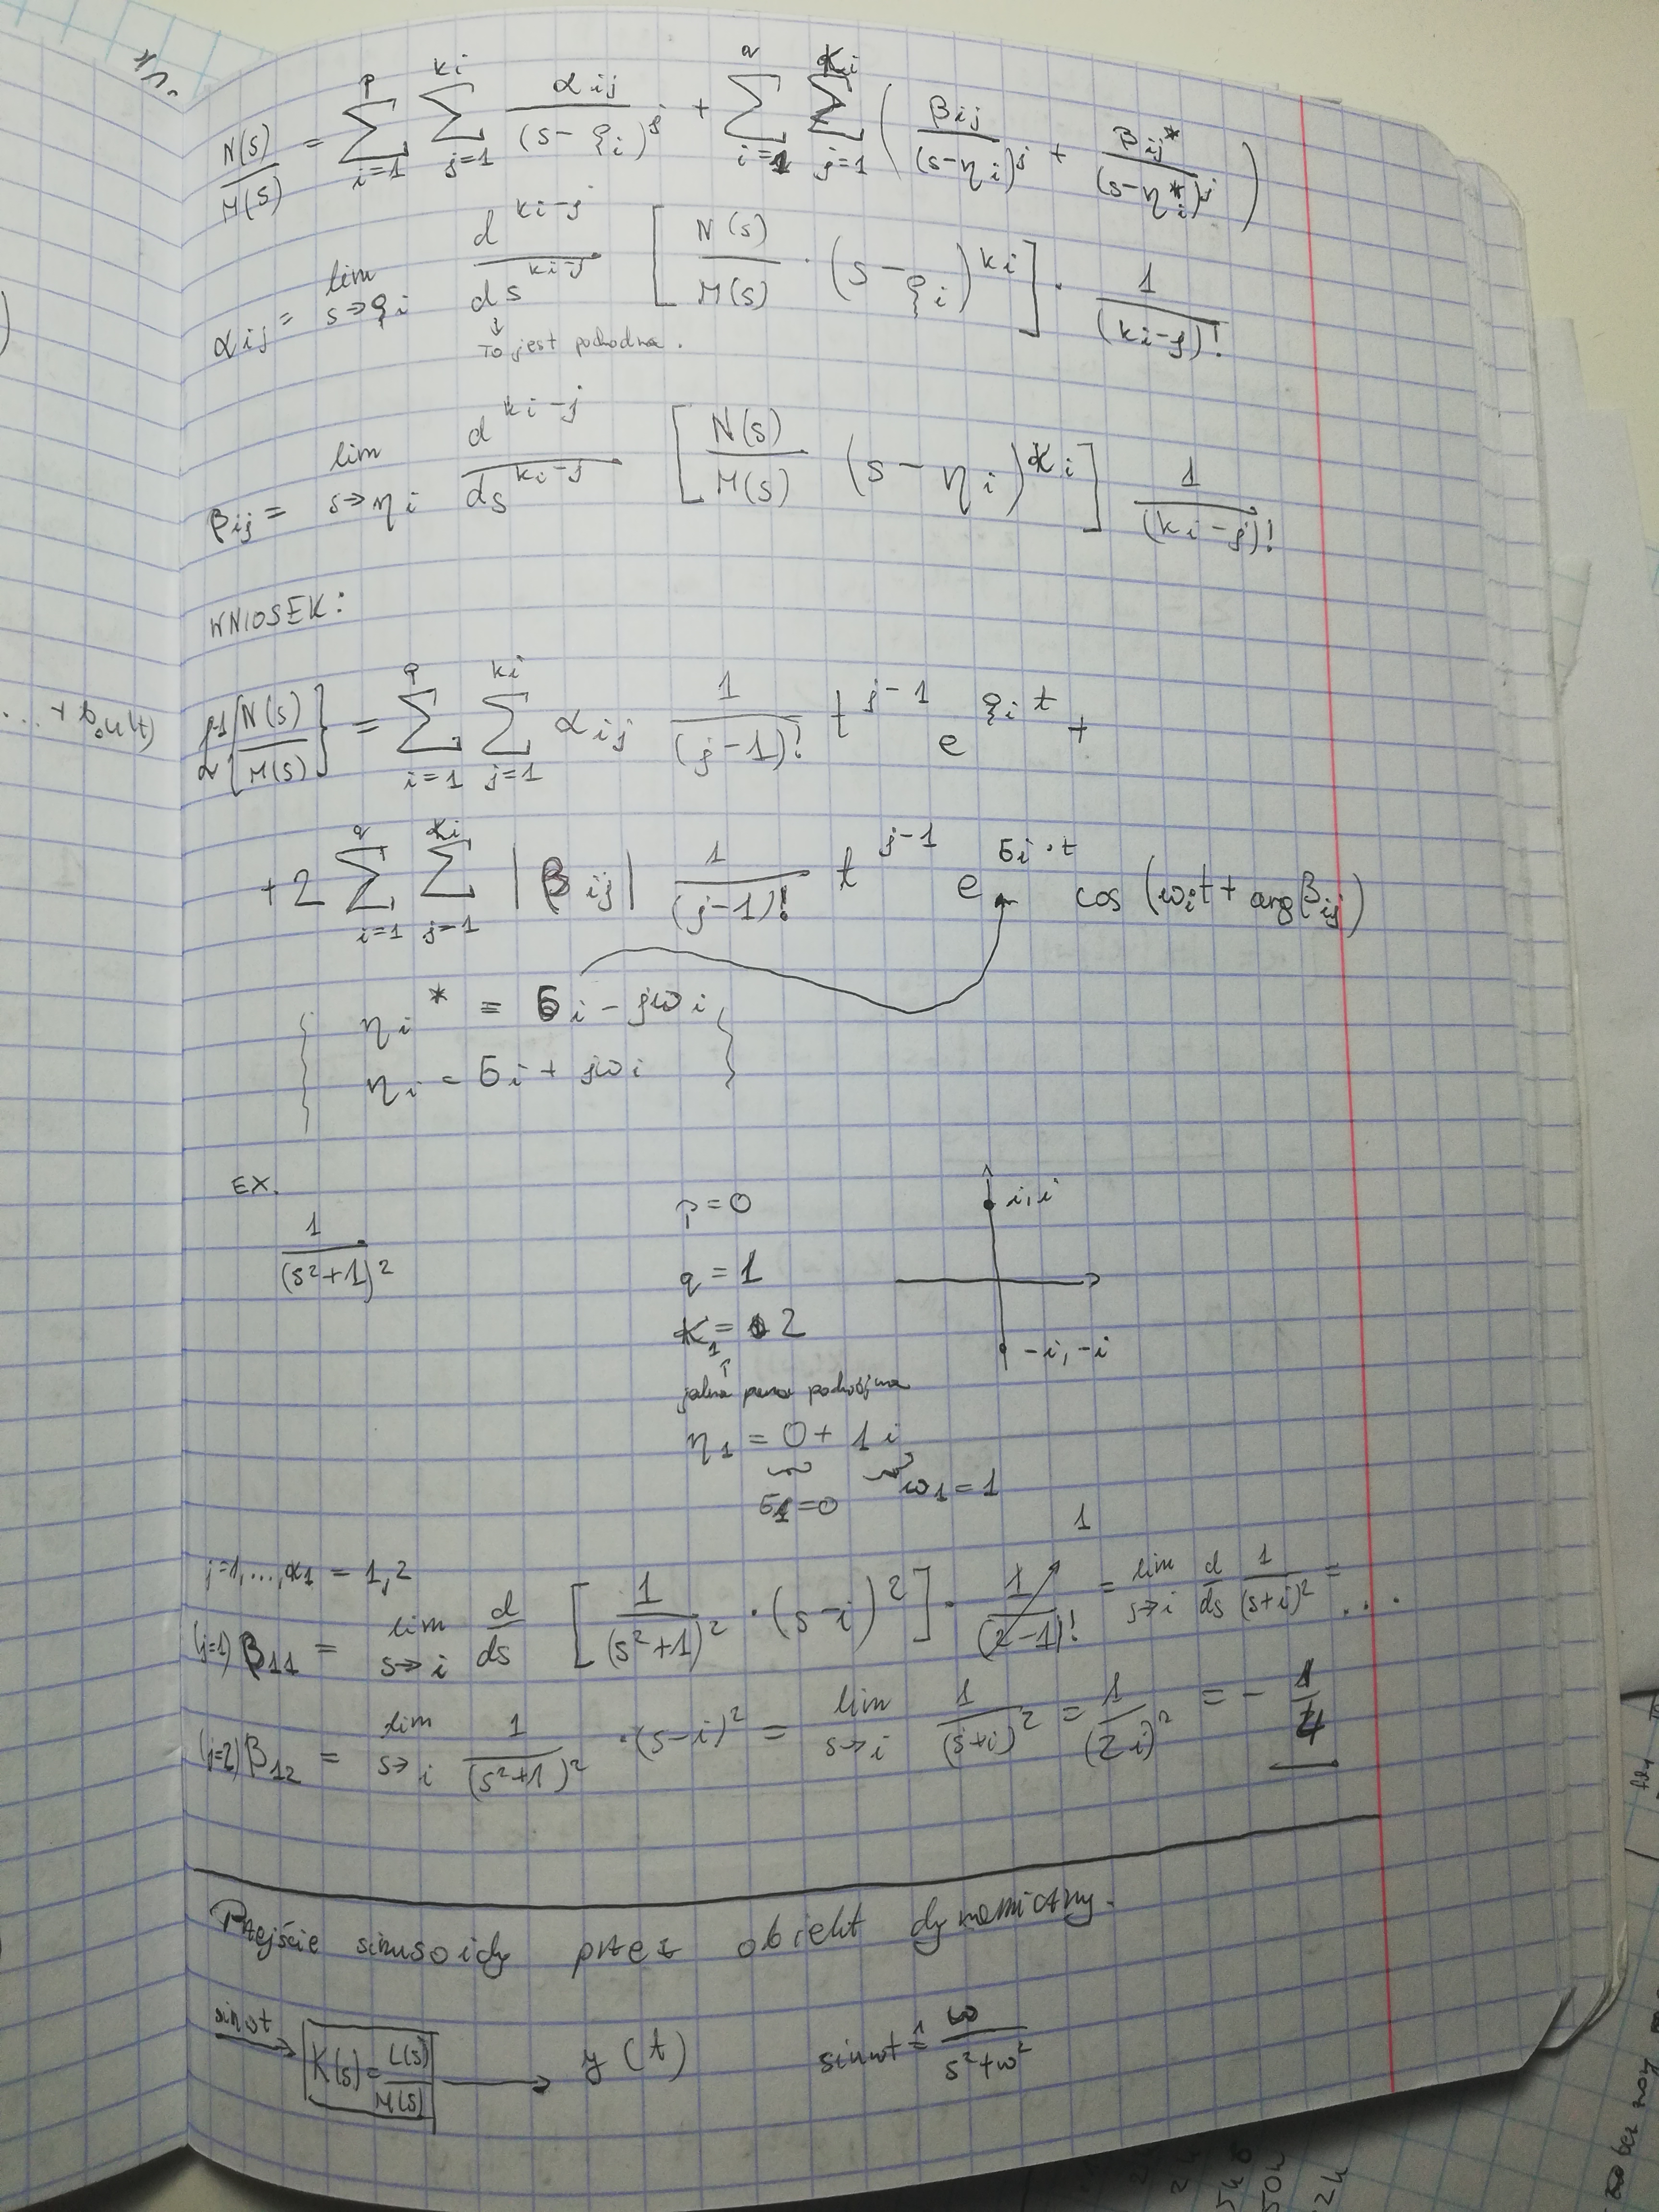 N(s)/M(s) = Σ_{i=1}^{p} Σ_{j=1}^{ki} αij/(s-ξi)^j + Σ_{i=1}^{q} Σ_{j=1}^{κi} ( βij/(s-ηi)^j + βij*/(s-ηi*)^j )
αij = lim_{s→ξi} d^{ki-j}/ds^{ki-j} [ N(s)/M(s) · (s-ξi)^{ki} ] · 1/(ki-j)!
↓
To jest pochodna.
βij = lim_{s→ηi} d^{ki-j}/ds^{ki-j} [ N(s)/M(s) (s-ηi)^{κi} ] 1/(ki-j)!
WNIOSEK:
... + b₀u(t)
ℒ^{-1}{ N(s)/M(s) } = Σ_{i=1}^{p} Σ_{j=1}^{ki} αij 1/(j-1)! t^{j-1} e^{ξi t} +
+ 2 Σ_{i=1}^{q} Σ_{j=1}^{κi} |βij| 1/(j-1)! t^{j-1} e^{σi·t} cos(ωit + arg βij)
ηi* = σi - jωi
ηi = σi + jωi
EX.
1/(s²+1)²
p=0
q=1
κ₁=2
↑
jedna para podwójna
η₁ = 0 + 1i
σ₁=0 ω₁=1
i, i
-i, -i
j=1,...,κ₁ = 1,2
(j=1) β₁₁ = lim_{s→i} d/ds [ 1/(s²+1)² · (s-i)² ] · 1/(2-1)! 1 = lim_{s→i} d/ds 1/(s+i)² = ...
(j=2) β₁₂ = lim_{s→i} 1/(s²+1)² · (s-i)² = lim_{s→i} 1/(s+i)² = 1/(2i)² = - 1/4
Przejście sinusoidy przez obiekt dynamiczny.
sinωt → K(s)=L(s)/M(s) → y(t)
sinωt ≙ ω/(s²+ω²)